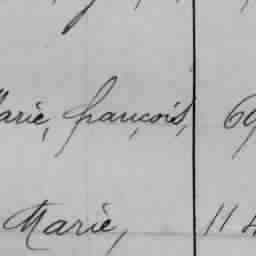 Marie, françois, 69
Marie, 114